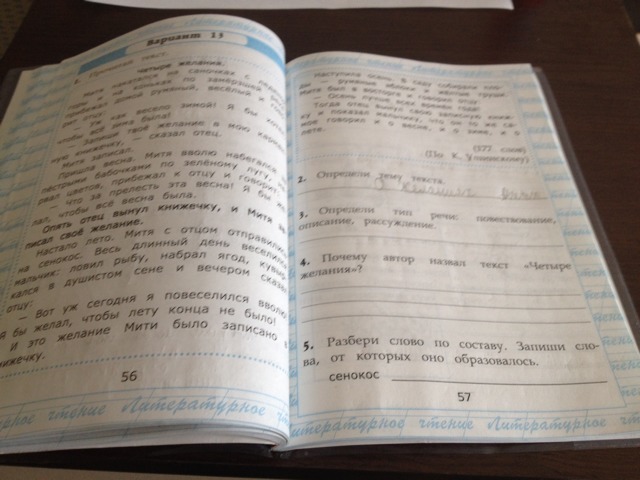 Вариант 13
1. Прочитай текст.
Четыре желания
Митя накатался на саночках с ледяной
на коньках по замёрзшей
прибежал домой румяный, весёлый и
рит отцу:
как весело зимой! Я бы
чтобы всё зима была!
Запиши твоё желание в мою карман
ную книжечку, — сказал отец.
Митя записал.
Пришла весна. Митя вволю набегался
пёстрыми бабочками по зелёному лугу,
рвал цветов, прибежал к отцу и говорит:
— Что за прелесть эта весна! Я бы же
лал, чтобы всё весна была.
Опять отец вынул книжечку, и Митя за
писал своё желание.
Настало лето. Митя с отцом отправились
на сенокос. Весь длинный день веселился
мальчик: ловил рыбу, набрал ягод, кувыр
кался в душистом сене и вечером сказал
отцу:
— Вот уж сегодня я повеселился вволю
Я бы желал, чтобы лету конца не было!
И это желание Мити было записано в
книжечку.
56
Литературное чтение Литературное
Наступила осень. В саду собирали пло-
ды — румяные яблоки и жёлтые груши.
Митя был в восторге и говорил отцу:
— Осень лучше всех времён года!
Тогда отец вынул свою записную книж-
ку и показал мальчику, что он то же са-
мое говорил и о весне, и о зиме, и о
лете.
(177 слов)
(По К. Ушинскому)
2. Определи тему текста.
3. Определи тип речи: повествование,
описание, рассуждение.
4. Почему автор назвал текст «Четыре
желания»?
5. Разбери слово по составу. Запиши сло-
ва, от которых оно образовалось.
сенокос
57
Литературное чтение Литературное